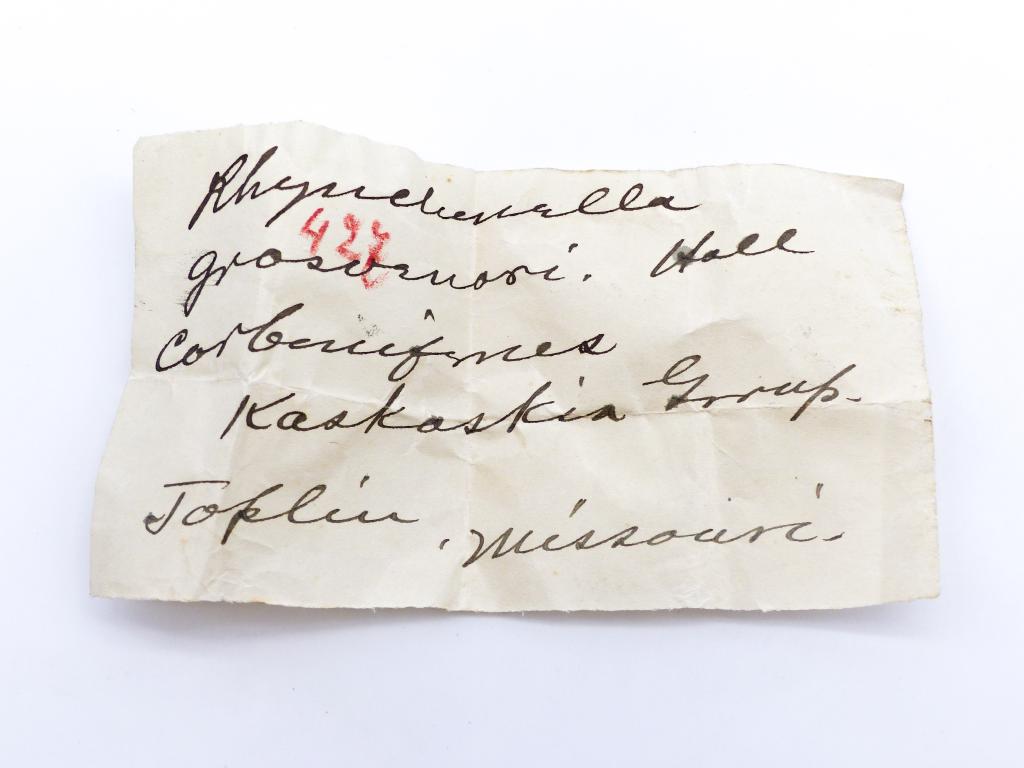 Rhynchonella
427
grosvenori. Hall
Carboniferous
Kaskaskia Group.
Joplin, Missouri.